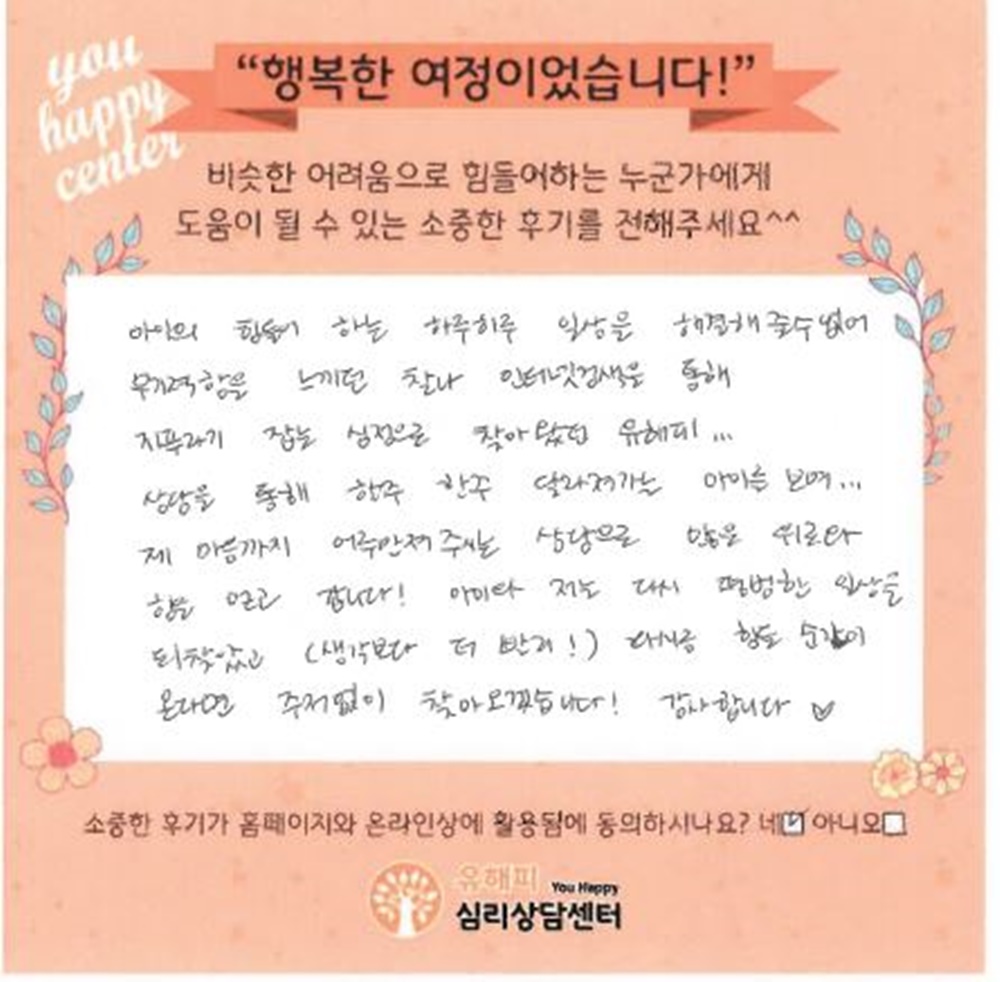 you
happy
center
“행복한 여정이었습니다!”
비슷한 어려움으로 힘들어하는 누군가에게
도움이 될 수 있는 소중한 후기를 전해주세요^^
아이의 힘들어 하는 하루하루 일상을 해결해 줄수 없어
무기력함을 느끼던 찰나 인터넷검색을 통해
지푸라기 잡는 심정으로 찾아왔던 유해피...
상담을 통해 한주 한주 달라져가는 아이를 보며...
제 마음까지 어루만져 주시는 상담으로 많은 위로와
힘을 얻고 갑니다! 아이와 저는 다시 평범한 일상을
되찾았고 (생각보다 더 빨리!) 또다시금 힘든 순간이
온다면 주저없이 찾아오겠습니다! 감사합니다 ♡
소중한 후기가 홈페이지와 온라인상에 활용됨에 동의하시나요? 네☑ 아니오☐
유해피 You Happy
심리상담센터